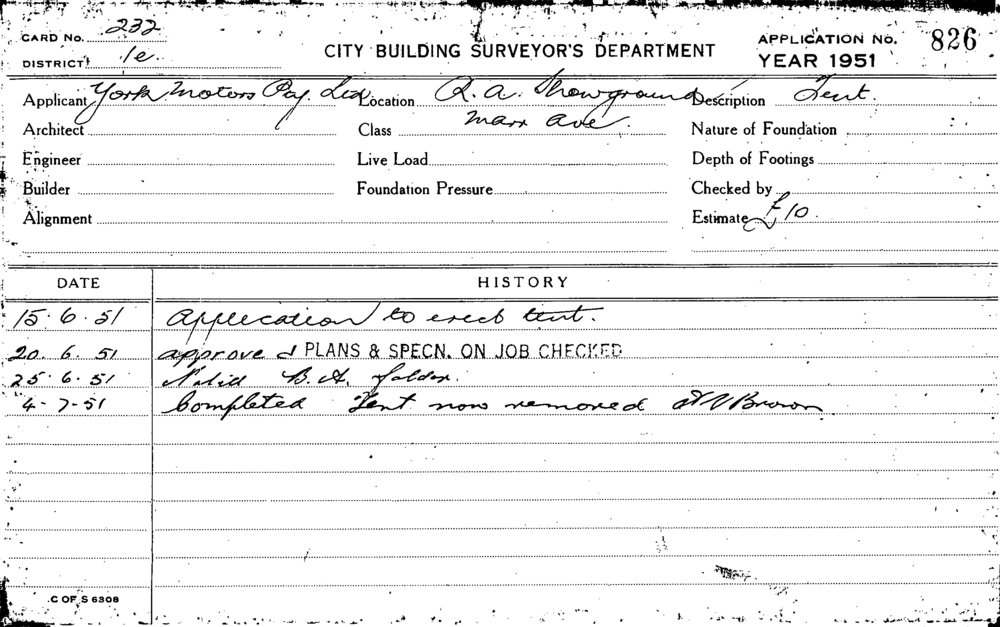 CARD No. 232
DISTRICT 1e.
CITY BUILDING SURVEYOR'S DEPARTMENT
APPLICATION No. 826
YEAR 1951
Applicant York Motors Pty. Ltd. Location R. A. Showground Description Tent.
Architect Class Marr Ave. Nature of Foundation
Engineer Live Load Depth of Footings
Builder Foundation Pressure Checked by
Alignment Estimate £10.
DATE HISTORY
15.6.51 Application to erect tent.
20.6.51 approved PLANS & SPECN. ON JOB CHECKED
25.6.51 B.A. folder.
4-7-51 Completed Tent now removed Brown
C OF S 6308